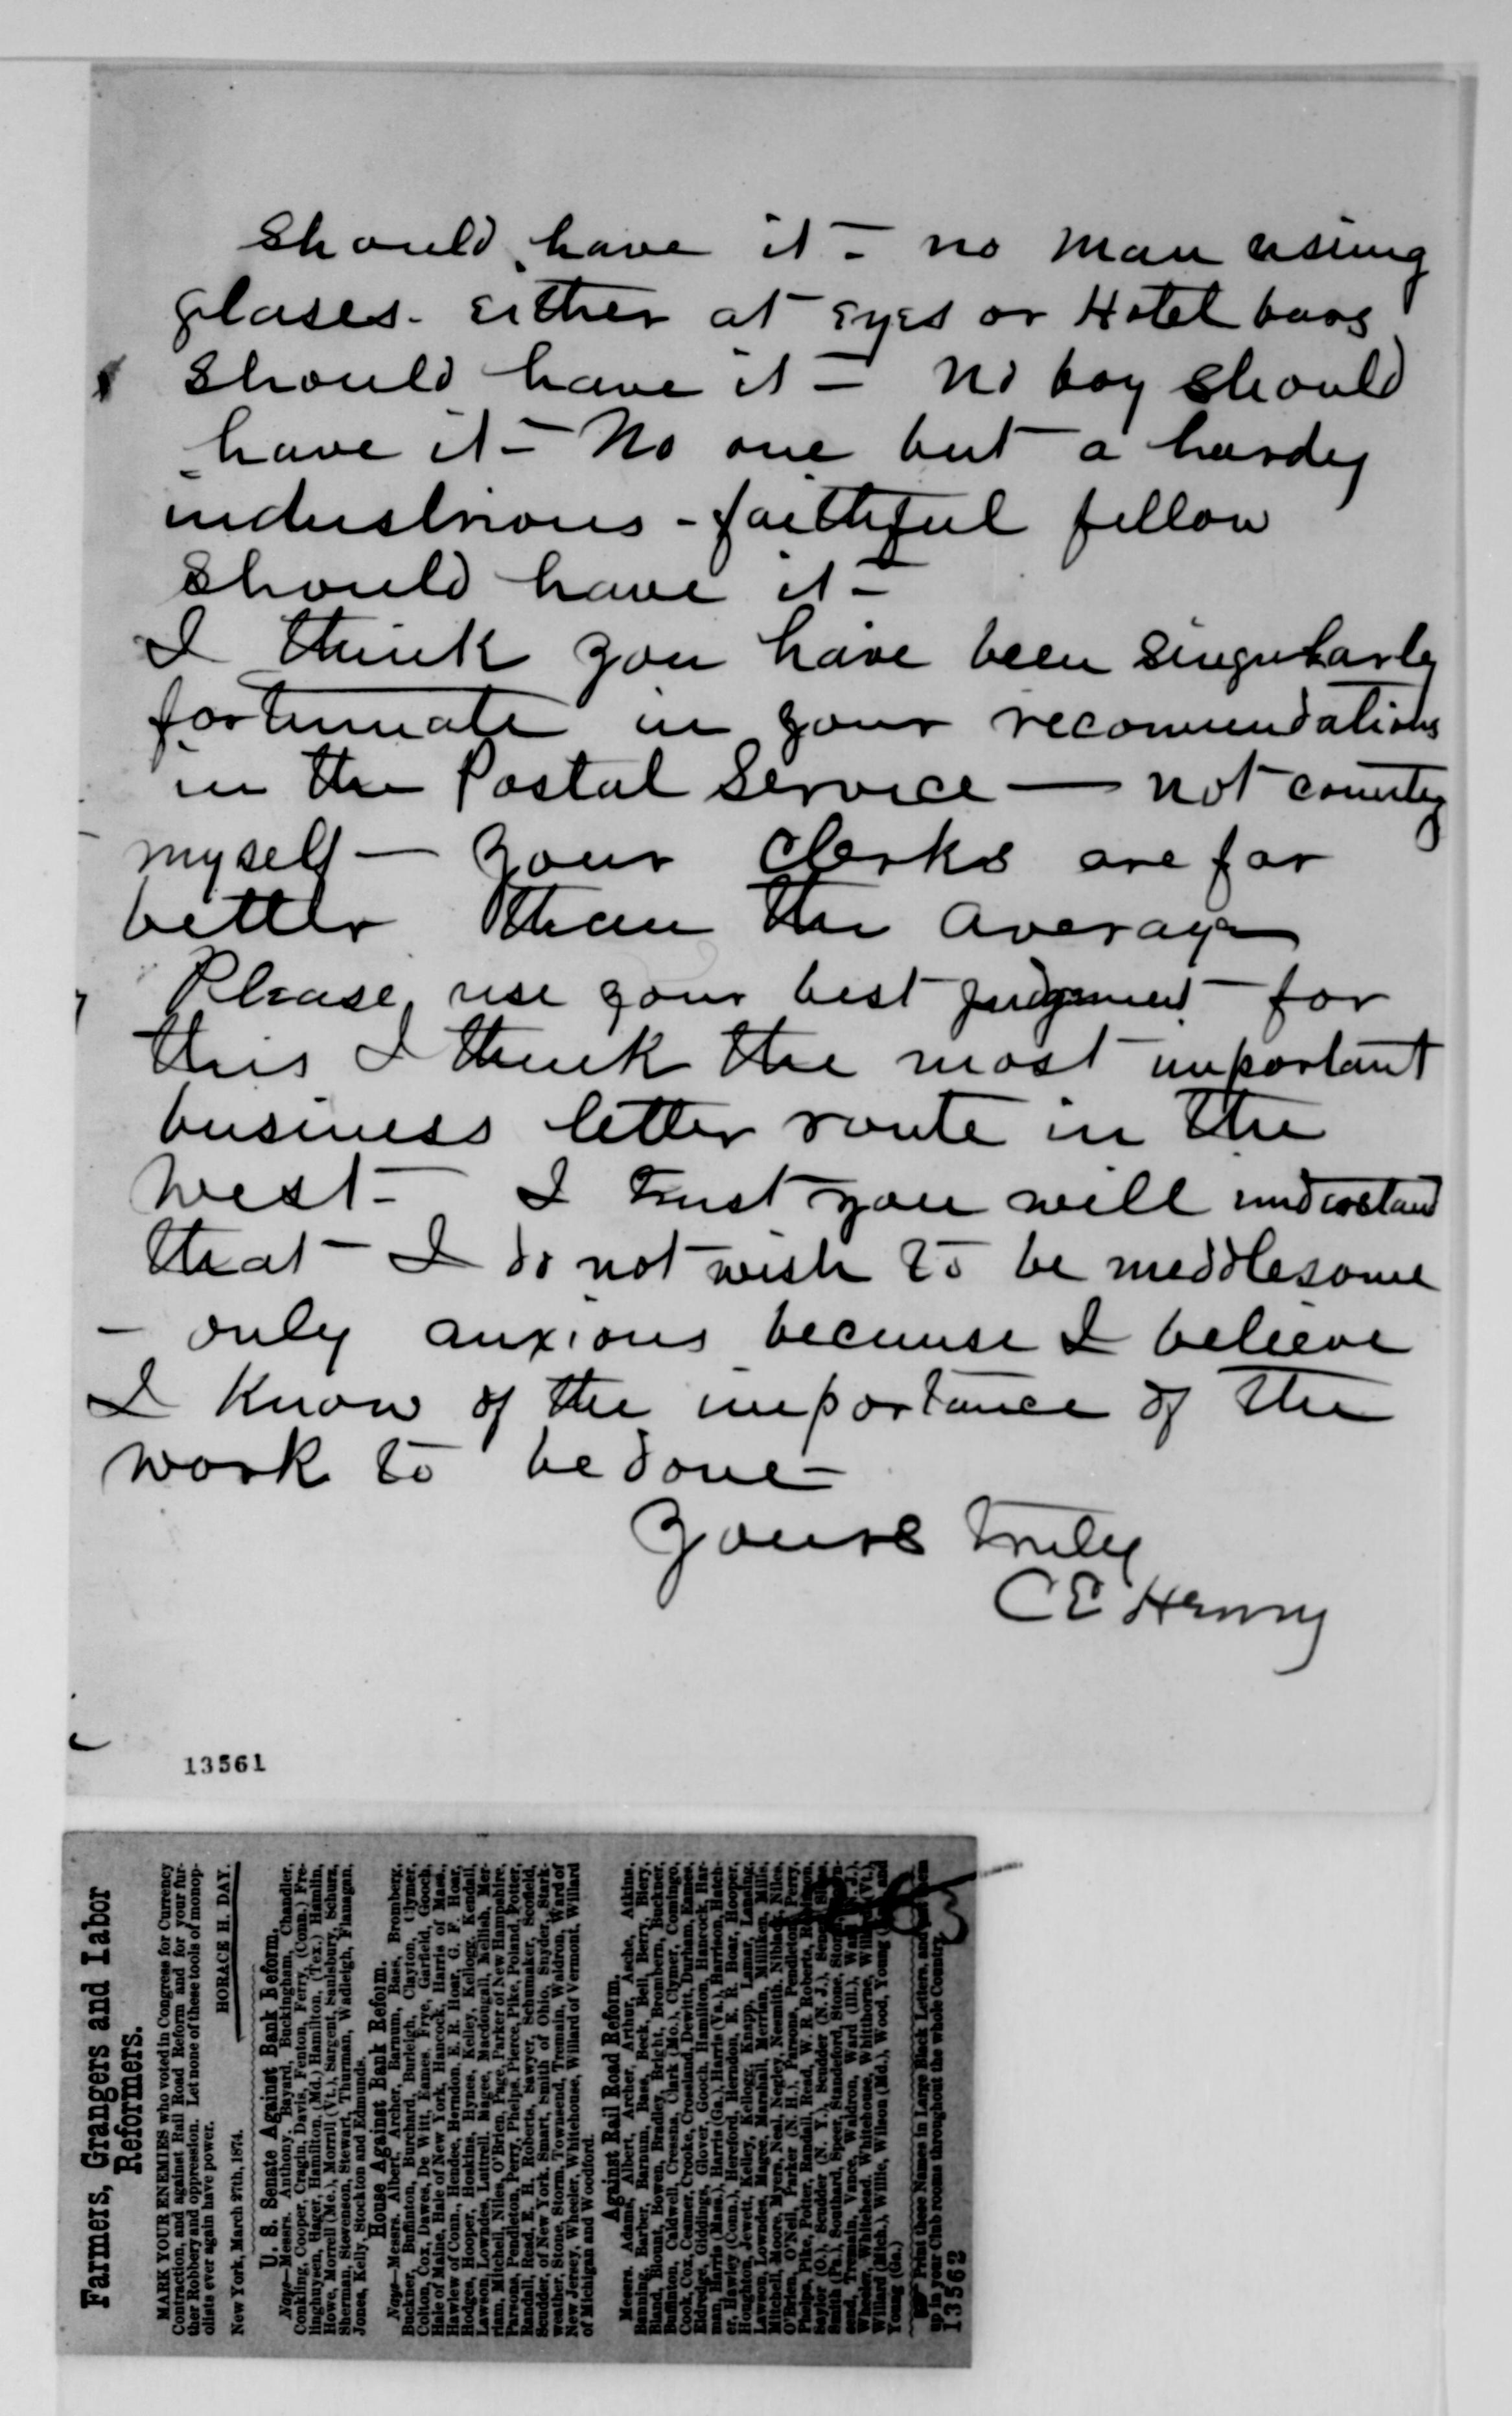 should have it - no man using
glases - either at eyes or Hotel bars
should have it - no boy should
have it - No one but a hardy
industrious - faithful fellow
should have it -
I think you have been singularly
fortunate in your recommendations
in the Postal Service — not county
myself — Your Clerks are far
better than the average
Please use your best judgment - for
this I think the most important
business letter route in the
West - I trust you will understand
that - I do not wish to be meddlesome
- only anxious because I believe
I know of the importance of the
work to be done -
Yours truly
C E Henry
13561
Farmers, Grangers and Labor
Reformers.
MARK YOUR ENEMIES who voted in Congress for Currency
Contraction, and against Rail Road Reform and for your fur-
ther Robbery and oppression. Let none of these tools of monop-
olists ever again have power.
HORACE H. DAY.
New York, March 27th, 1874.
U. S. Senate Against Bank Reform.
Nays—Messrs. Anthony, Bayard, Buckingham, Chandler,
Conkling, Cooper, Cragin, Davis, Fenton, Ferry, (Conn.) Fre-
linghuysen, Hager, Hamilton, (Md.) Hamilton, (Tex.) Hamlin,
Howe, Morrell (Me.), Morrill (Vt.), Sargent, Saulsbury, Schurz,
Sherman, Stevenson, Stewart, Thurman, Wadleigh, Flanagan,
Jones, Kelly, Stockton and Edmunds.
House Against Bank Reform.
Nays—Messrs. Albert, Archer, Barnum, Bass, Bromberg,
Buckner, Buffinton, Burchard, Burleigh, Clayton, Clymer,
Colton, Cox, Dawes, De Witt, Eames, Frye, Garfield, Gooch,
Hale of Maine, Hale of New York, Hancock, Harris of Mass.,
Hawley of Conn., Hendee, Herndon, E. R. Hoar, G. F. Hoar,
Hodges, Hooper, Hoskins, Hynes, Kelley, Kellogg, Kendall,
Lawson, Lowndes, Luttrell, Magee, Macdougall, Mellish, Mer-
riam, Mitchell, Niles, O'Brien, Page, Parker of New Hampshire,
Parsons, Pendleton, Perry, Phelps, Pierce, Pike, Poland, Potter,
Randall, Read, E. H. Roberts, Sawyer, Schumaker, Scofield,
Scudder, of New York, Smart, Smith of Ohio, Snyder, Stark-
weather, Stone, Storm, Townsend, Tremain, Waldron, Ward of
New Jersey, Wheeler, Whitehouse, Willard of Vermont, Willard
of Michigan and Woodford.
Against Rail Road Reform.
Messrs. Adams, Albert, Archer, Arthur, Asche, Atkins,
Banning, Barber, Barnum, Bass, Beck, Bell, Berry, Biery,
Bland, Blount, Bowen, Bradley, Bright, Bromberg, Buckner,
Buffinton, Caldwell, Cressna, Clark (Mo.), Clymer, Comingo,
Cook, Cox, Creamer, Crooke, Crossland, Dewitt, Durham, Eames,
Eldredge, Giddings, Glover, Gooch, Hamilton, Hancock, Har-
man, Harris (Mass.), Harris (Ga.), Harris (Va.), Harrison, Hatch-
er, Hawley (Conn.), Hereford, Herndon, E. R. Hoar, Hooper,
Houghton, Jewett, Kelley, Kellogg, Knapp, Lamar, Lansing,
Lawson, Lowndes, Magee, Marshall, Merriam, Milliken, Mills,
Mitchell, Moore, Myers, Neal, Negley, Nesmith, Niblack, Niles,
O'Brien, O'Neil, Parker (N. H.), Parsons, Pendleton, Perry,
Phelps, Pike, Potter, Randall, Read, W. R. Roberts,
Saylor (O.), Scudder (N. Y.), Scudder (N. J.),
Smith (Pa.), Southard, Speer, Standeford, Stone,
Tremain, Vance, Waldron, Ward (Ill.),
Wheeler, Whitehead, Whitehouse, Whithorne,
Willard (Mich.), Willie, Wilson (Md.), Wood, Young (Ky.) and
Young (Ga.)
Print these Names in Large Black Letters, and
up in your Club rooms throughout the whole Country.
13562